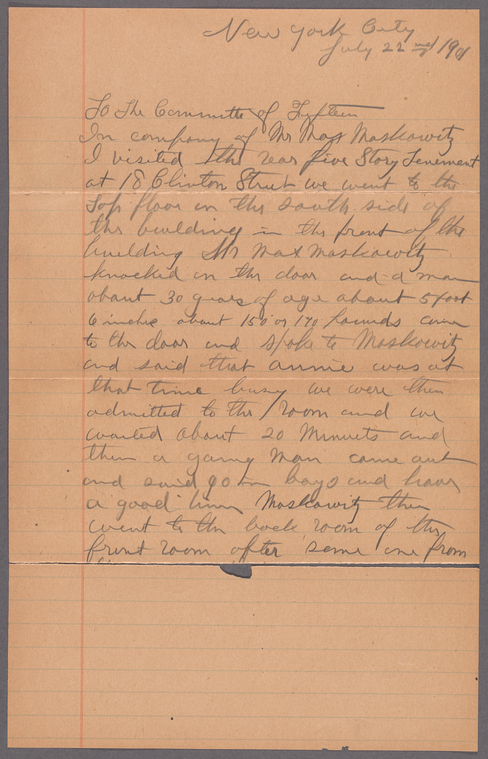 New York City
July 22nd 1901
To The Committee of Fifteen
In company of Mr Max Moskowitz
I visited the rear five Story Tenement
at 18 Clinton Street we went to the
top floor on the south side of
the building in the front of the
building Mr Max Moskowitz
knocked on the door and a man
about 30 years of age about 5 foot
6 inches about 150 or 170 pounds came
to the door and spoke to Moskowitz
and said that annie was at
that time busy we were then
admitted to the room and we
waited about 20 Minuets and
then a young man came out
and said go in boys and have
a good time Moskowitz then
went to the back room of the
front room after some one from